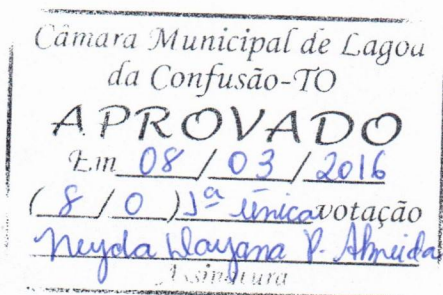 Câmara Municipal de Lagoa
da Confusão-TO
APROVADO
Em 08 / 03 / 2016
( 8 / 0 ) 1ª única votação
Neyda Dayana P. Almeida
Assinatura